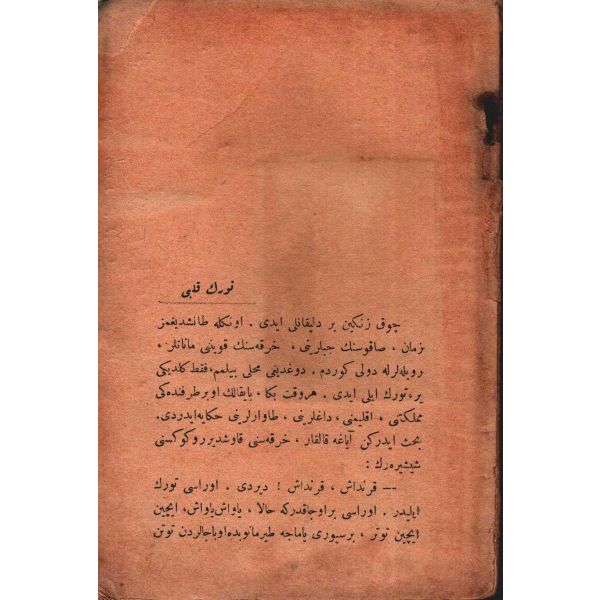 تورك قلبی
چوق زنكین بر دلیقانلی ایدی . اونكله طانشدیغمز
زمان ، صاقوسنك جیبلرینی ، خرقه‌سنك قوینی ماناتلر ،
روبله‌لرله دولی كوردم . دوغدیغی محلی بیلمم، فقط كلدیكی
یر، تورك ایلی ایدی . هروقت بكا، بایقالك اوبر طرفنده‌كی
مملكتنی ، اقلیمنی، داغلرینی ، طاوارلرینی حكایه ایدردی.
بحث ایدركن آیاغه قالقار ، خرقه‌سنی قاوشدیرر و كوكسنی
شیشیره‌رك :
— قرنداش ، قرنداش ! دیردی . اوراسی تورك
ایلیدر . اوراسی بر اوجاقدركه حالا ، یاواش یاواش، ایچین
ایچین توتر ، برسیوری یاماجه طیرمانوبده اوباجالردن توتن